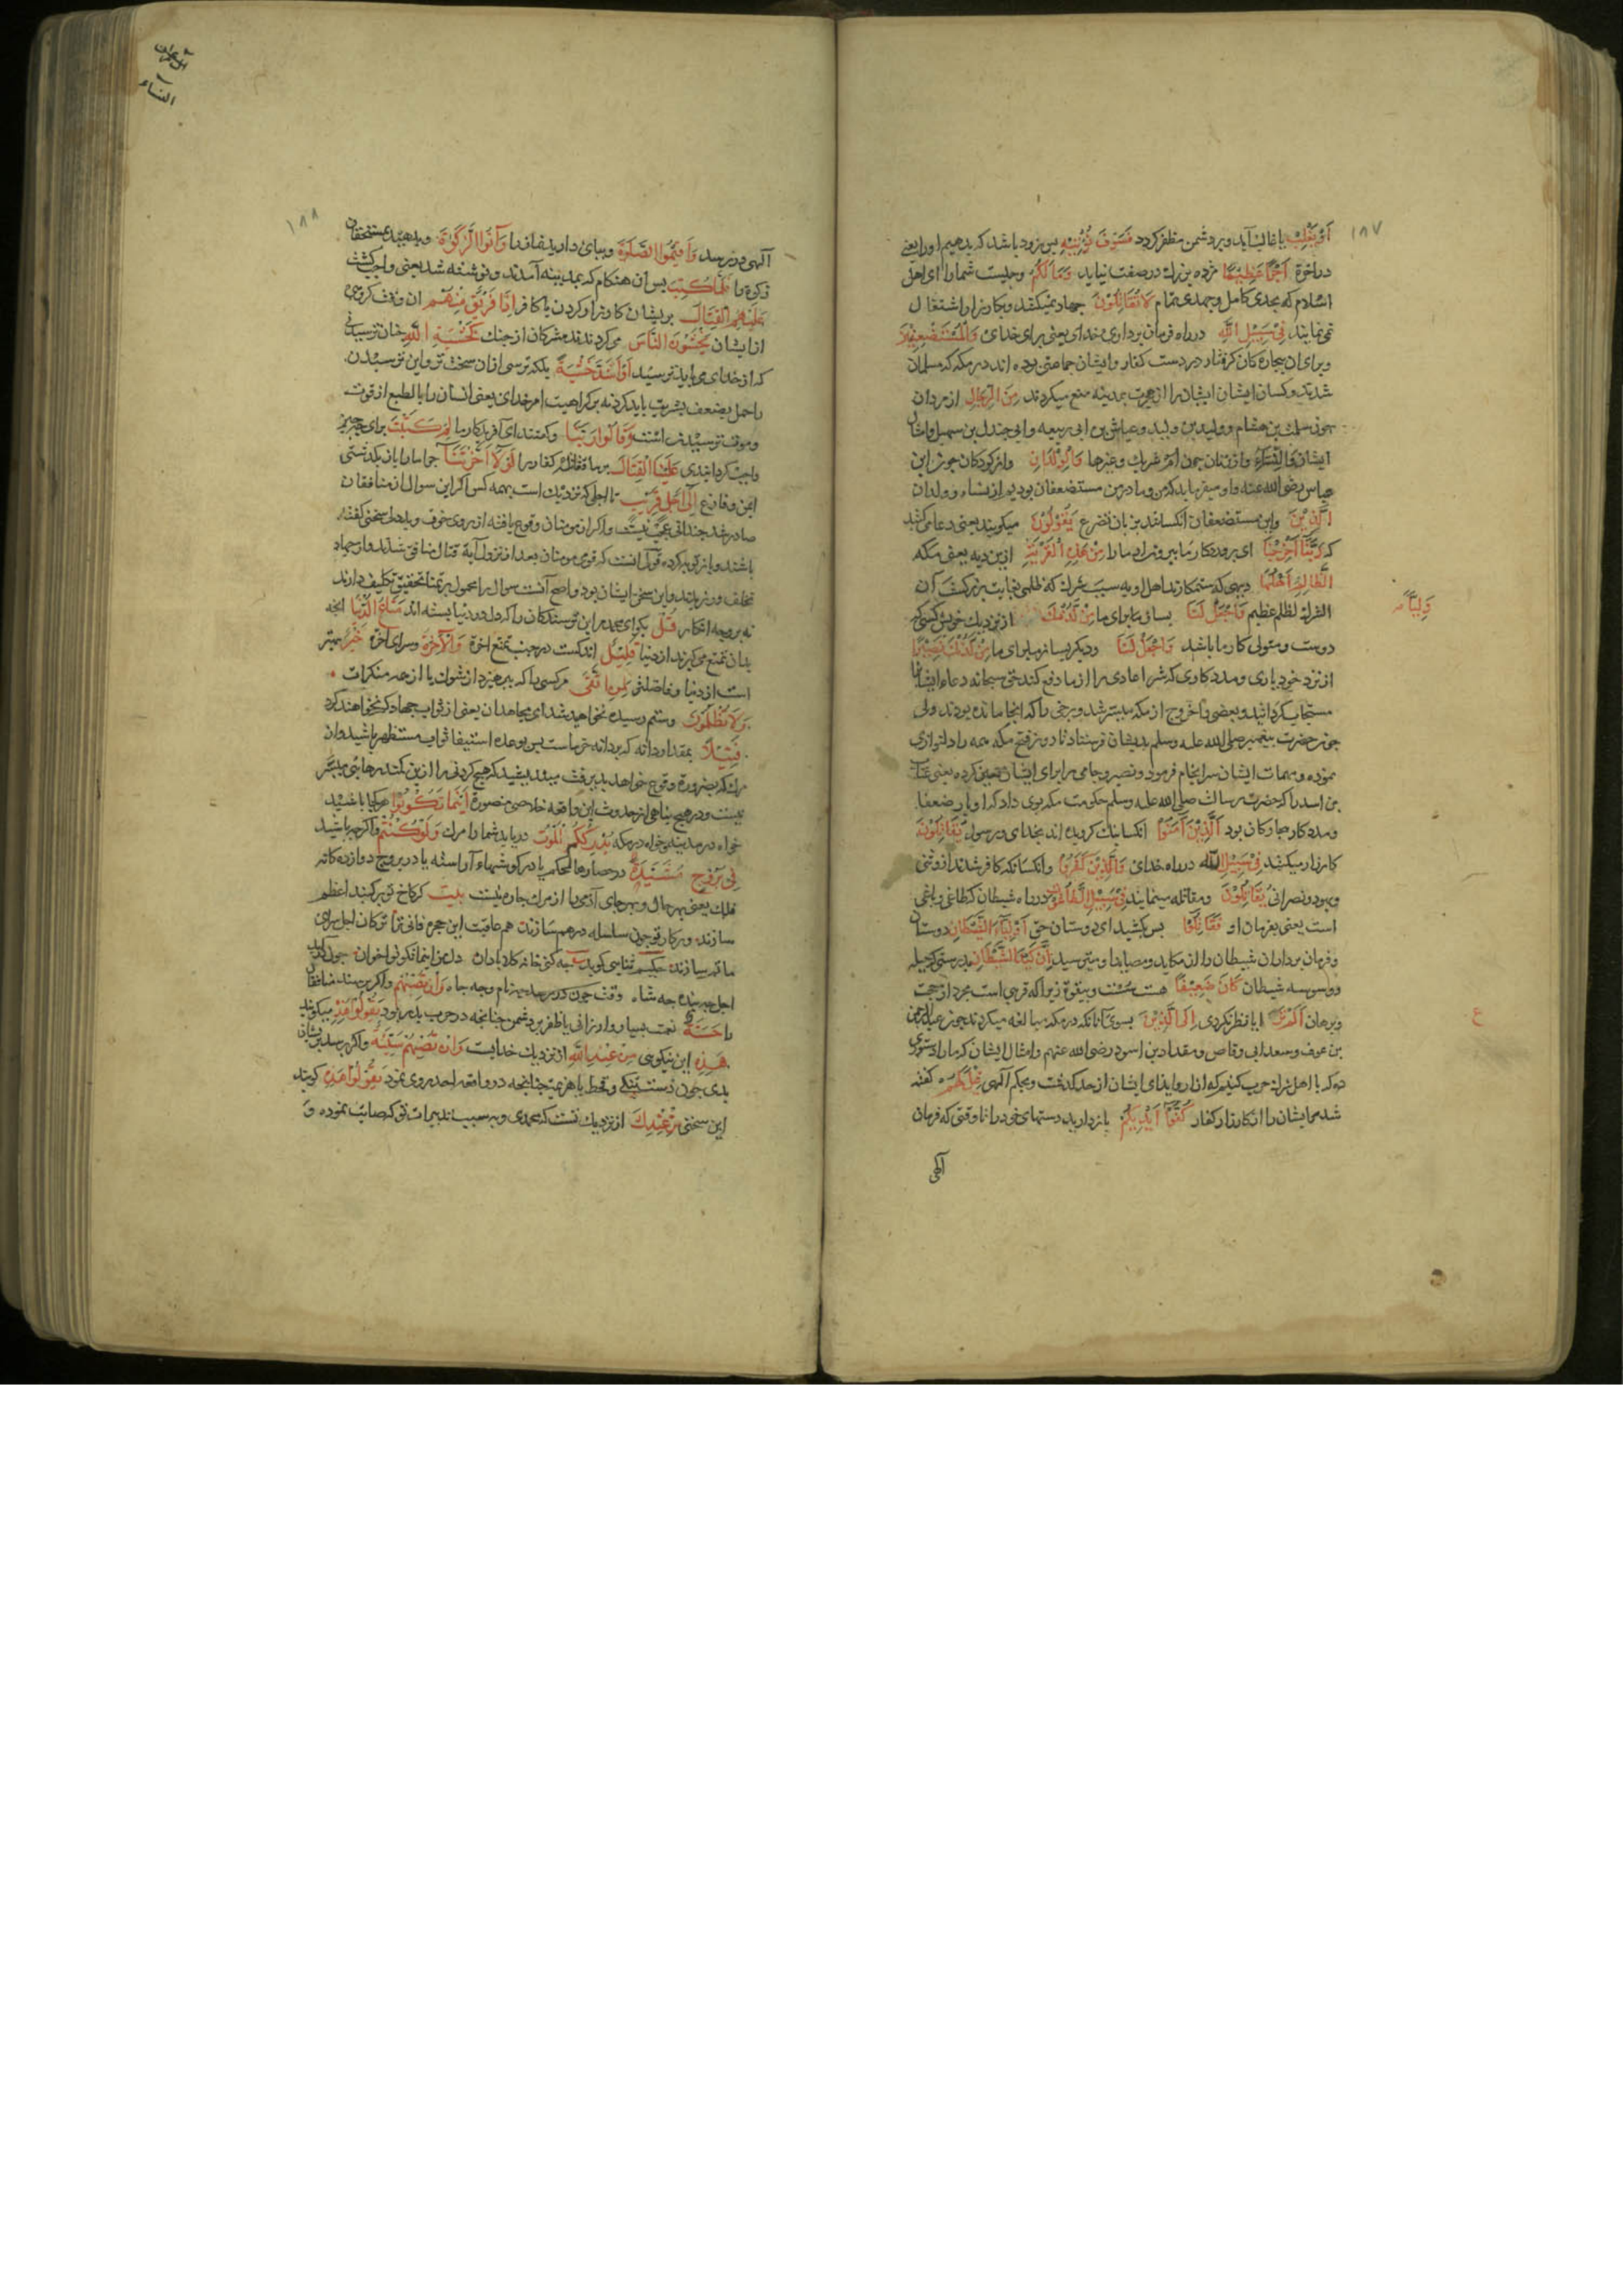 ١٨٧
أَوْ يَغْلِبْ يا غالب آيد و بر دشمن مظفر كردد فَسَوْفَ نُؤْتِيهِ پس زود باشد كه بدهيم او را يعنى
در آخرة أَجْرًا عَظِيمًا مزده بزرك در صفت نيايد وَمَا لَكُمْ و چيست شما را اى اهل
اسلام كه بجدى كامل و جهدى تمام لَا تُقَاتِلُونَ جهاد نميكنيد و بكارزار اشتغال
نمى نمايند فِي سَبِيلِ اللَّهِ در راه فرمان بردارى خداى يعنى براى خداى وَالْمُسْتَضْعَفِينَ
و براى ان بيجاره كان كرفتار در دست كفار و ايشان جماعتى بوده اند در مكه كه مسلمان
شدند و كسان ايشان ايشان را از هجرت بمدينه منع ميكردند مِنَ الرِّجَالِ از مردان
چون سلمة بن هشام و وليد بن وليد و عياش بن ابى ربيعه و ابى جندل بن سهيل و امثال
ايشان وَالنِّسَاءِ و از زنان چون ام شريك و غيرها وَالْوِلْدَانِ و از كودكان چون ابن
عباس رضى الله عنه و او ميفرمايد كه من و مادر من مستضعفان بوديم از نساء و ولدان
الَّذِينَ و اين مستضعفان انكسانند بزبان تضرع يَقُولُونَ ميكويند يعنى دعا مى كنند
كه رَبَّنَا أَخْرِجْنَا اى پروردكار ما بيرون ار ما را مِنْ هَذِهِ الْقَرْيَةِ ازين ديه يعنى مكه
الظَّالِمِ أَهْلُهَا ديهى كه ستمكارند اهل او به سبب شرك كه ظلمى نهايت بزركست ان
الشرك لظلم عظيم وَاجْعَلْ لَنَا بساز ما براى ما مِنْ لَدُنْكَ از نزديك خويش كسى كه
وَلِيًّا
دوست و متولى كار ما باشد وَاجْعَلْ لَنَا و ديكر بساز براى ما مِنْ لَدُنْكَ نَصِيرًا
از نزد خود يارى و مددكارى كه شر اعادى را از ما دفع كند حق سبحانه دعاء ايشان
مستجاب كردانيد و بعضى را خروج از مكه ميسر شد و برخى را كه انجا مانده بودند ولى
چون حضرت پيغمبر صلى الله عليه وسلم بديشان فرستاد تا در روز فتح مكه همه را دلنوازى
نموده و مهمات ايشان سرانجام فرمود و نصير و حامى را براى ايشان تعيين كرده يعنى عتاب
بن اسيد را كه حضرت رسالت صلى الله عليه وسلم حكومت مكه بوى داد كه او يار ضعفا
و مددكار بيجاركان بود الَّذِينَ آمَنُوا انكسانيكه كرويده اند بخداى و رسول يُقَاتِلُونَ
كارزار ميكنند فِي سَبِيلِ اللَّهِ در راه خداى وَالَّذِينَ كَفَرُوا و انكسانكه كافر شدند از وثنى
و يهود و نصرانى يُقَاتِلُونَ و مقاتله مينمايند فِي سَبِيلِ الطَّاغُوتِ در راه شيطان كه طاغى و باغى
است يعنى بفرمان او فَقَاتِلُوا پس بكشيد اى دوستان حق أَوْلِيَاءَ الشَّيْطَانِ دوستان
و فرمان برداران شيطان را از مكايد و مصايد او مترسيد إِنَّ كَيْدَ الشَّيْطَانِ بدرستى كه حيله
و وسوسه شيطان كَانَ ضَعِيفًا هست سست و بيقوة زيرا كه قربى است مجرد از حجت
و برهان أَلَمْ تَرَ ايا نظر نكردى إِلَى الَّذِينَ بسوى آنانكه در مكه مبالغه ميكردند چون عبد الرحمن
ع
بن عوف و سعد ابى وقاص و مقداد بن اسود رضى الله عنهم و امثال ايشان كه ما را دستورى
ده كه با اهل شرك حرب كنيم كه ازار و ايذاى ايشان از حد كذشت و بحكم آلهى قِيلَ لَهُمْ كفته
شد مر ايشان را از كارزار كفار كُفُّوا أَيْدِيَكُمْ باز داريد دستهاى خود را تا وقتى كه فرمان
آلهى
آل عمران
النساء
١٨٨
آلهى در رسد وَأَقِيمُوا الصَّلَوةَ و بپاى داريد نماز را وَآتُوا الزَّكَوةَ و بدهيد بمستحقان
زكوة را فَلَمَّا كُتِبَ پس ان هنكام كه بمدينه آمدند و نوشته شد يعنى واجب كشت
عَلَيْهِمُ الْقِتَالُ بريشان كارزار كردن با كافر إِذَا فَرِيقٌ مِنْهُمْ ان وقت كروهى
از ايشان يَخْشَوْنَ النَّاسَ مى ترسند مشركان از جنك كَخَشْيَةِ اللَّهِ چنان ترسيدنى
كه از خداى مى بايد ترسيد أَوْ أَشَدَّ خَشْيَةً بلكه ترسى از ان سخت تر و اين ترسيدن
را حمل بضعف بشريت بايد كرد نه بر كراهيت امر خداى يعنى انسان را بالطبع از قوت
و موت ترسيدن است وَقَالُوا رَبَّنَا و كفتند اى آفريدكار ما لِمَ كَتَبْتَ براى چه چيز
واجب كردانيدى عَلَيْنَا الْقِتَالَ بر ما مقاتله كفار را لَوْلَا أَخَّرْتَنَا چرا ما را باز نكذاشتى
ايمن و فارغ إِلَى أَجَلٍ قَرِيبٍ تا اجلى كه نزديك است بهمه كس اكر اين سوال از منافقان
صادر شد چندانى عجب نيست و اكر از مومنان وقوع يافته از روى خوف و بددلى سخنى كفته
باشند و باز توبه كرده قولى انست كه قومى مومنان بعد از نزول آية قتال منافق شدند و از جهاد
تخلف ورزيدند و اين سخن ايشان بود و اصح آنست سوال را محمول بر تمناء تخفيف تكليف دارند
نه بر وجه انكار قُلْ بكو اى محمد مر اين ترسندكان را كه دل در دنيا بسته اند مَتَاعُ الدُّنْيَا انچه
بدان تمتع مى كيرند از دنيا قَلِيلٌ اندكست در جنب تمتع آخرة وَالْآخِرَةُ و سراى آخرة خَيْرٌ بهتر
است از دنيا و فاضلتر لِمَنِ اتَّقَى مر كسى را كه بپرهيزد از شرك يا از همه منكرات
وَلَا تُظْلَمُونَ و ستم رسيده نخواهيد شد اى مجاهدان يعنى از ثواب جهاد كم نخواهند كرد
فَتِيلًا بمقدار دانه كه بر دانه خرماست پس بوعده استيفا ثواب مستظهر باشيد و از
مرك كه بضرورة وقوع خواهد پذيرفت مينديشيد كه هيچكس را ازين كمند رهايى ميسر
نيست و در هيچ پناهى از حدوث اين واقعه خلاصى متصور نه أَيْنَمَا تَكُونُوا هر كجا باشيد
خواه در مدينه و خواه در مكه يُدْرِكُكُمُ الْمَوْتُ دريابد شما را مرك وَلَوْ كُنْتُمْ و اكرچه باشيد
فِي بُرُوجٍ مُشَيَّدَةٍ در حصارهاء محكم يا در كوشكهاء آراسته يا در بروج دوازده كانه
فلك يعنى بهر حال و بهر جاى آدمى را از مرك چاره نيست بيت كر كاخ تو بر كنبد اعظم
سازند و ركار تو چون سلسله در هم سازند هم عاقبت اين حجره فانى ترا تركان اجل سراى
ماتم سازند حكيم سنايى كويد
اجل چه بنده چه شاه وقت چون در رسد چه نام و چه جاه وَإِنْ تُصِبْهُمْ و اكر برسد منافقان
را حَسَنَةٌ نعمت بسيار و ارزانى يا ظفر بر دشمن چنانچه در حرب بدر بود يَقُولُوا هَذِهِ ميكويند
هَذِهِ اين نيكويى مِنْ عِنْدِ اللَّهِ از نزديك خدايست وَإِنْ تُصِبْهُمْ سَيِّئَةٌ و اكر برسد بريشان
بدى چون دست تنكى و قحط يا هزيمت چنانچه در واقعه احد روى نمود يَقُولُوا هَذِهِ كويند
اين سختى مِنْ عِنْدِكَ از نزديك تست كه محمدى و به سبب تدبيرات تو كه صايب نبوده و